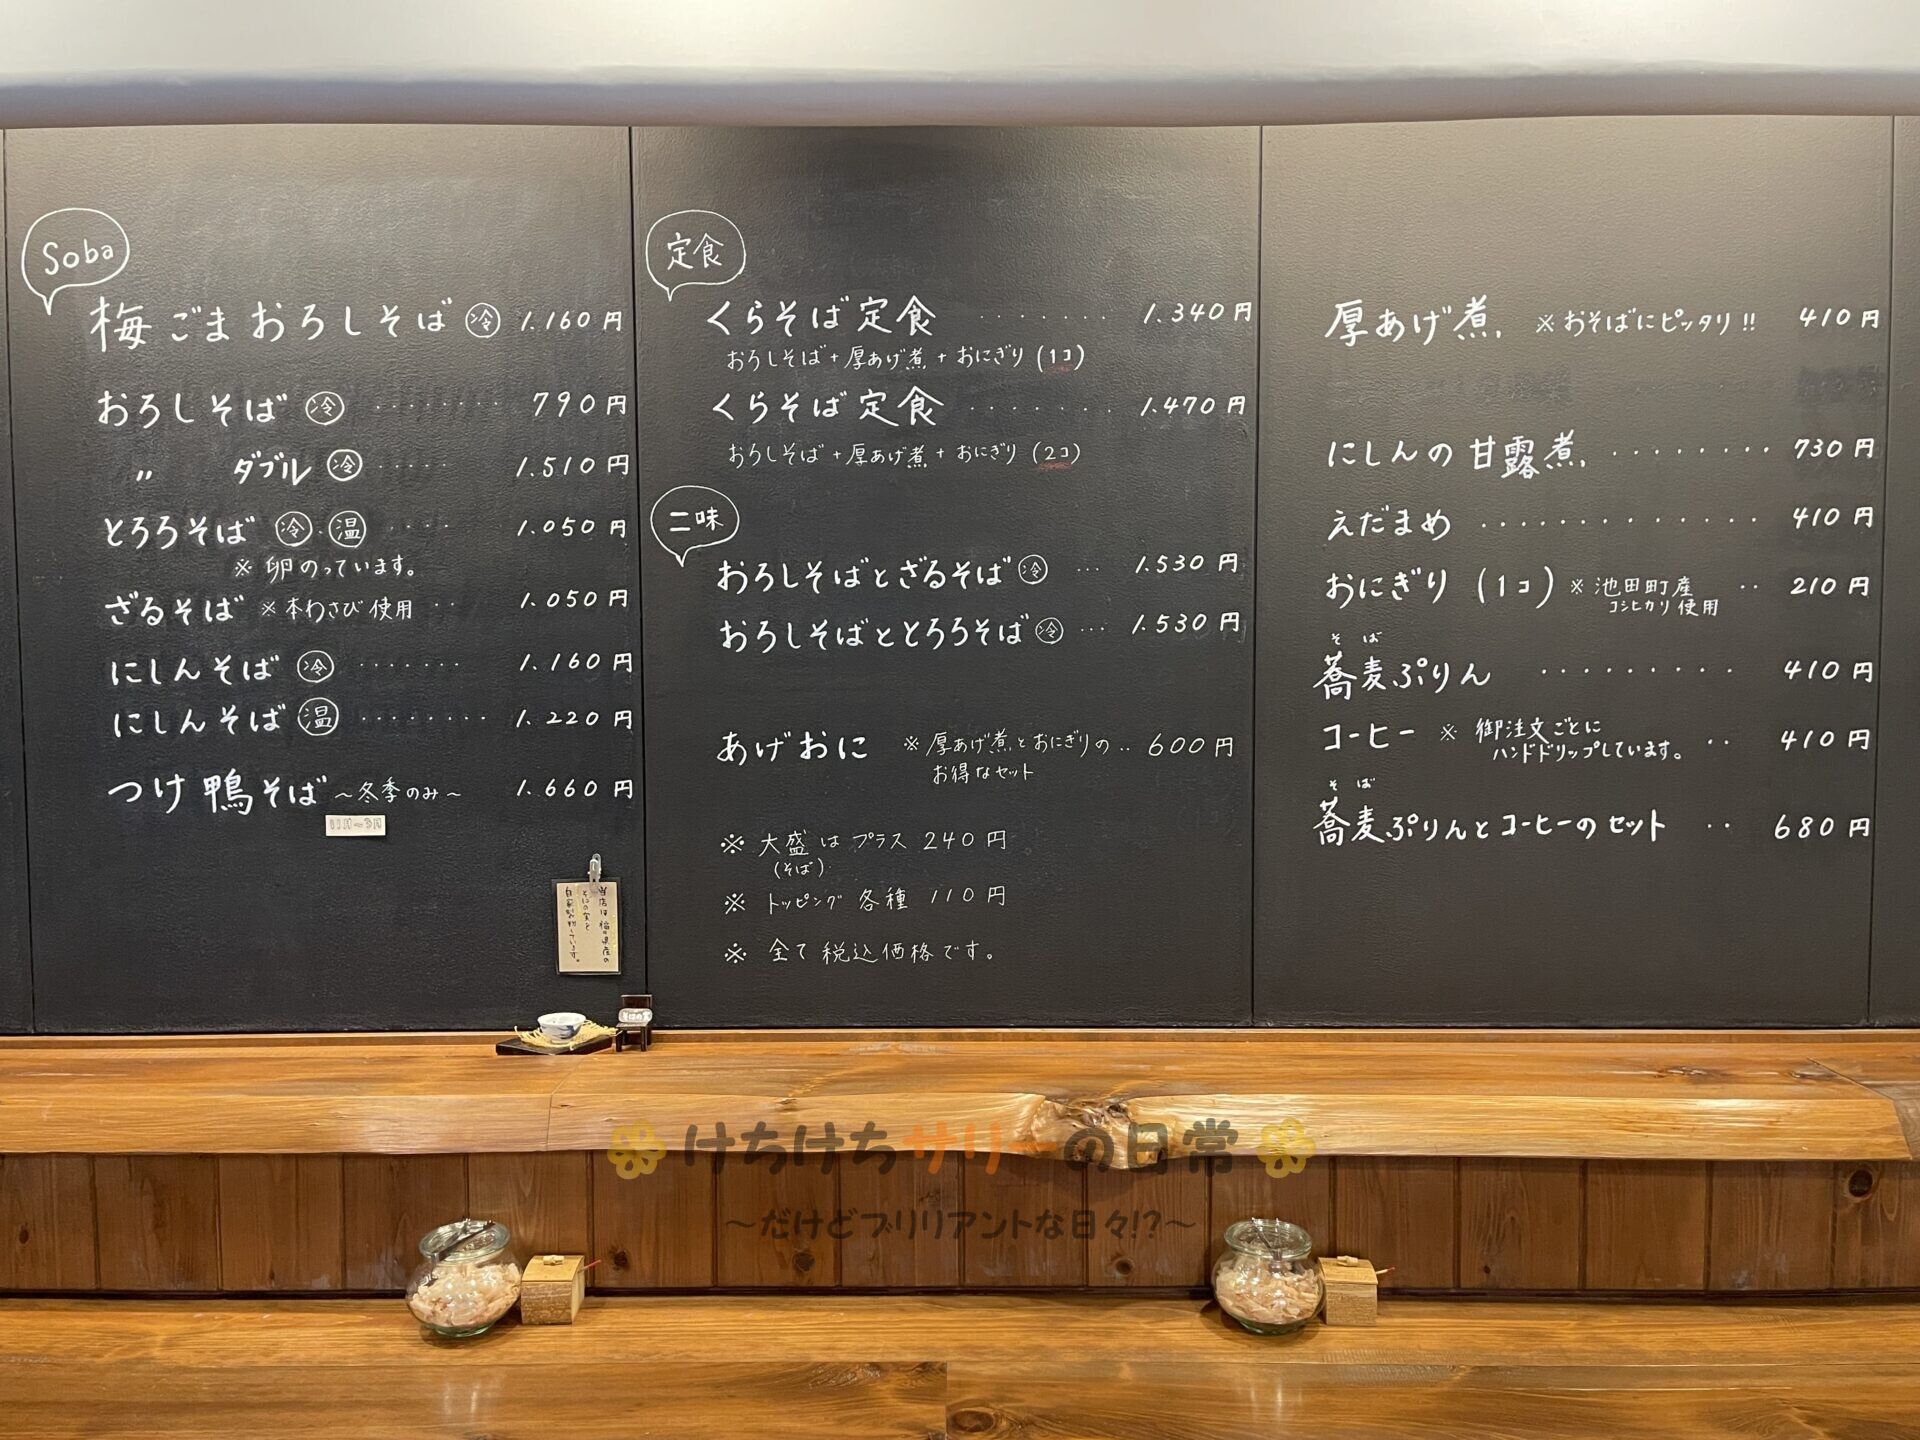 Soba
梅ごまおろしそば 冷 1.160円
おろしそば 冷 ········ 790円
〃 ダブル 冷 ····· 1.510円
とろろそば 冷・温 ···· 1.050円
※卵のっています。
ざるそば ※本わさび使用 ·· 1.050円
にしんそば 冷 ······· 1.160円
にしんそば 温 ········ 1.220円
つけ鴨そば ～冬季のみ～ 1.660円
11月～3月
当店は福井県産の
そばの実を
自家製粉しています。
そばの実
定食
くらそば定食 ······· 1.340円
おろしそば+厚あげ煮+おにぎり(1コ)
くらそば定食 ······· 1.470円
おろしそば+厚あげ煮+おにぎり(2コ)
二味
おろしそばとざるそば 冷 ··· 1.530円
おろしそばととろろそば 冷 ··· 1.530円
あげおに ※厚あげ煮とおにぎりの ·· 600円
お得なセット
※ 大盛は プラス 240円
(そば)
※ トッピング 各種 110円
※ 全て税込価格です。
厚あげ煮 ※おそばにピッタリ!! 410円
にしんの甘露煮 ········ 730円
えだまめ ············· 410円
おにぎり (1コ) ※池田町産 ·· 210円
コシヒカリ使用
そば
蕎麦ぷりん ········· 410円
コーヒー ※ 御注文ごとに
ハンドドリップしています。 ·· 410円
そば
蕎麦ぷりんとコーヒーのセット ·· 680円
けちけちサリーの日常
～だけどブリリアントな日々!?～